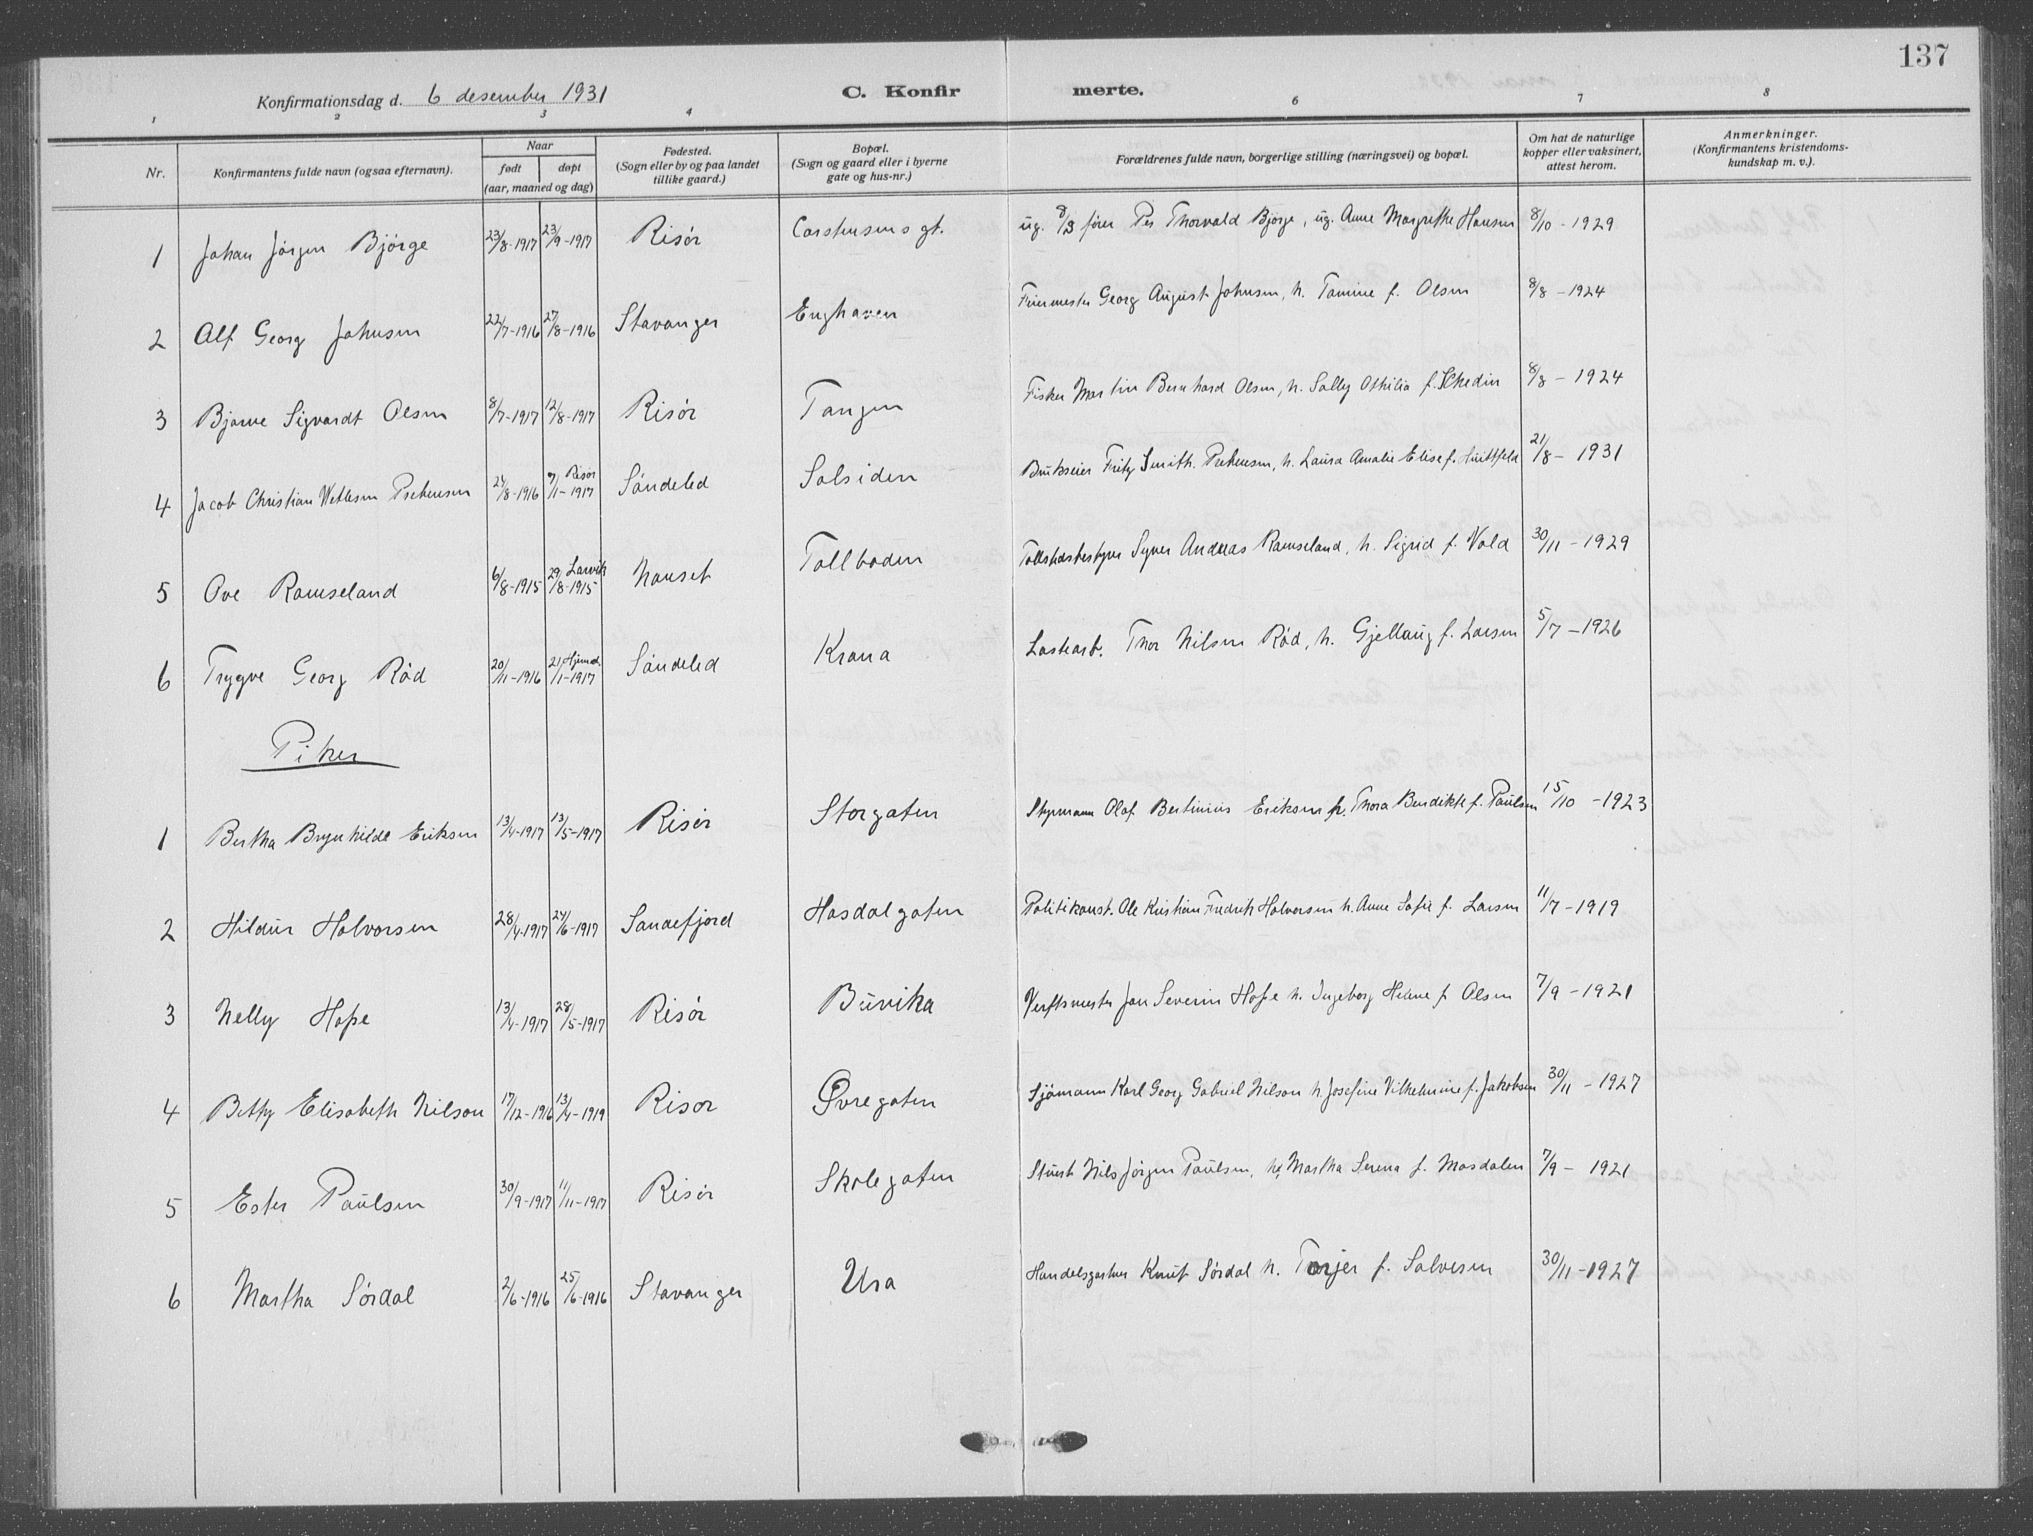 137
Konfirmationsdag d. 6 desember 1931 C. Konfir merte.
1 2 3 4 6 7 8
Nr. Konfirmantens fulde navn (ogsaa efternavn). Naar født døpt (aar, maaned og dag) Fødested. (Sogn eller by og paa landet tillike gaard.) Bopæl. (Sogn og gaard eller i byerne gate og hus-nr.) Forældrenes fulde navn, borgerlige stilling (næringsvei) og bopæl. Om hat de naturlige kopper eller vaksinert, attest herom. Anmerkninger. (Konfirmantens kristendomskundskap m. v.).
1 Johan Jørgen Bjørge 23/8-1917 23/9-1917 Risör Carstensens gt. ug. fører Per Thorvald Bjørge, ug. Anne Margrethe Hansen 8/10-1929
2 Alf Georg Johnsen 22/7-1916 27/8-1916 Stavanger Enghaven Feiermester Georg August Johnsen, h. Tomine f. Olsen 8/8-1924
3 Bjarne Sigvardt Olsen 8/7-1917 12/8-1917 Risör Tangen Fisker Martin Bernhard Olsen, h. Solley Othilia f. Schedin 8/8-1924
4 Jacob Christian Wetlesen Prebensen 24/8-1916 9/1-1917 Risör Söndeled Solsiden Brukseier Fritz Smith Prebensen, h. Laura Amalie Elise f. Huitfeld 21/8-1931
5 Ove Ramseland 6/8-1915 29/8-1915 Larvik Nanset Tollboden Syver Andreas Ramseland, h. Sigrid f. Vold 30/11-1929
6 Trygve Georg Röd 20/11-1916 21/1-1917 Hjemd. Söndeled Krana Lastearb. Thor Nilsen Röd, h. Gjellaug f. Larsen 5/7-1926
Piker
1 Bertha Brynhilde Eriksen 13/4-1917 13/5-1917 Risör Storgaten Styrmann Olaf Bertinius Eriksen h. Thora Bendikte f. Paulsen 15/10-1923
2 Hildur Halvorsen 28/4-1917 24/6-1917 Sandefjord Hasdalgaten Politikonst. Ole Kristian Fredrik Halvorsen h. Anne Sofie f. Larsen 11/7-1919
3 Nelly Hope 13/4-1917 28/5-1917 Risör Buvika Verftsmester Jan Severin Hope h. Ingeborg Helene f. Olsen 7/9-1921
4 Betty Elisabeth Nilson 17/12-1916 13/4-1919 Risor Øvregaten Sjömann Karl Georg Gabriel Nilson h. Josefine Vilhelmine f. Jakobsen 30/11-1927
5 Ester Paulsen 30/9-1917 11/11-1917 Risör Skolegaten Stuert Nils Jörgen Paulsen, h. Martha Serena f. Masdalen 7/9-1921
6 Martha Sördal 2/6-1916 25/6-1916 Stavanger Ura Handelsgartner Knut Sördal h. Torjer f. Salvesen 30/11-1927